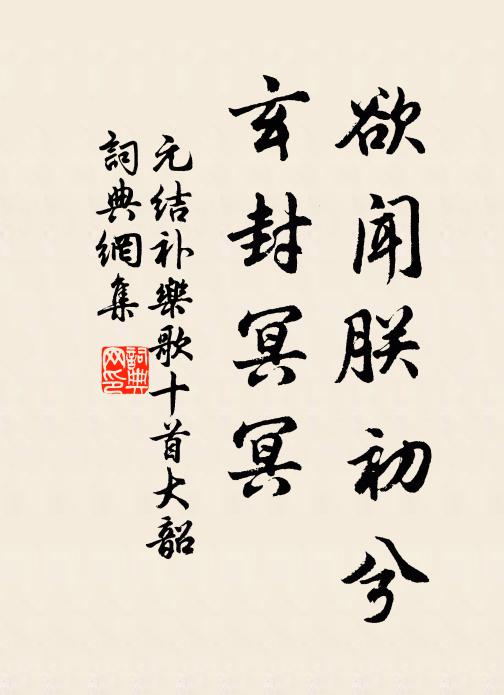 欲闻朕初兮
玄封冥冥
元结补樂歌十首大韶
詞典網集
詞典网印